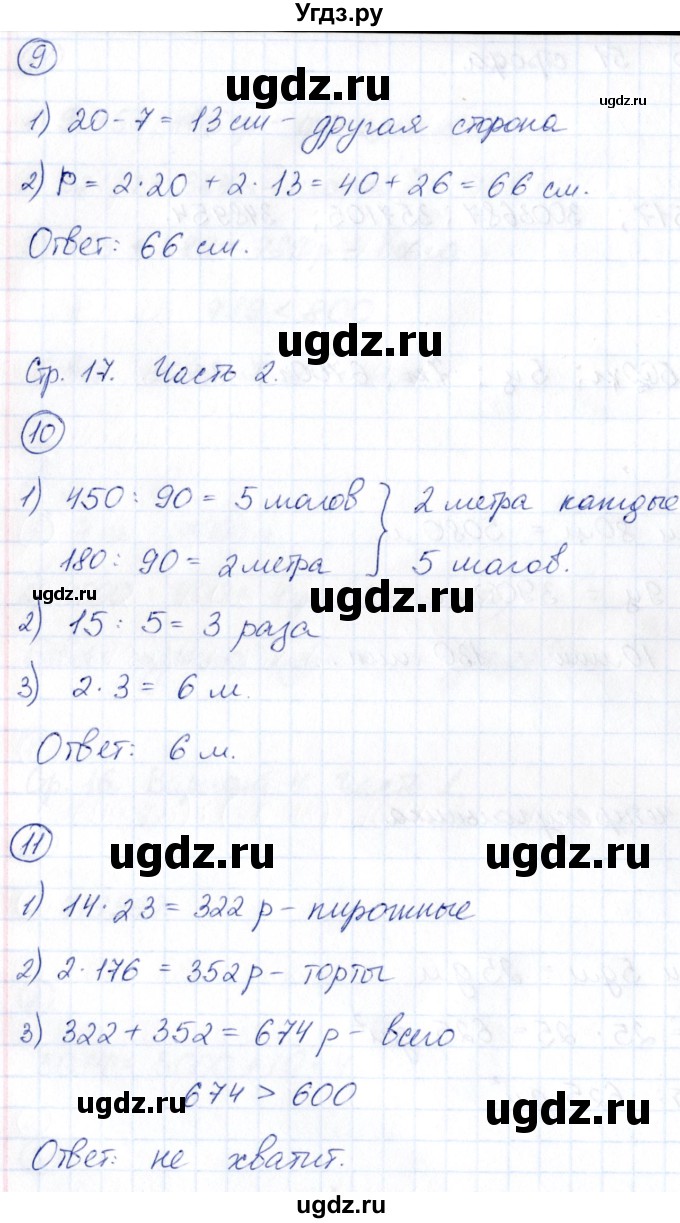 Угдз.ру
9
ugdz.ru
ugdz.ru
1) 20 - 7 = 13 см - другая сторона
2) P = 2·20 + 2·13 = 40 + 26 = 66 см.
Ответ: 66 см.
ugdz.ru
Стр. 17. Часть 2.
10
1) 450 : 90 = 5 шагов } 2 метра каждые
180 : 90 = 2 метра } 5 шагов.
ugdz.ru
ugdz.ru
2) 15 : 5 = 3 раза
3) 2·3 = 6 м.
Ответ: 6 м.
11
ugdz.ru
ugdz.ru
1) 14·23 = 322 р - пирожные
2) 2·176 = 352 р - торты
3) 322 + 352 = 674 р - всего
674 > 600
ugdz.ru
ugdz.ru
Ответ: не хватит.
ugdz.ru